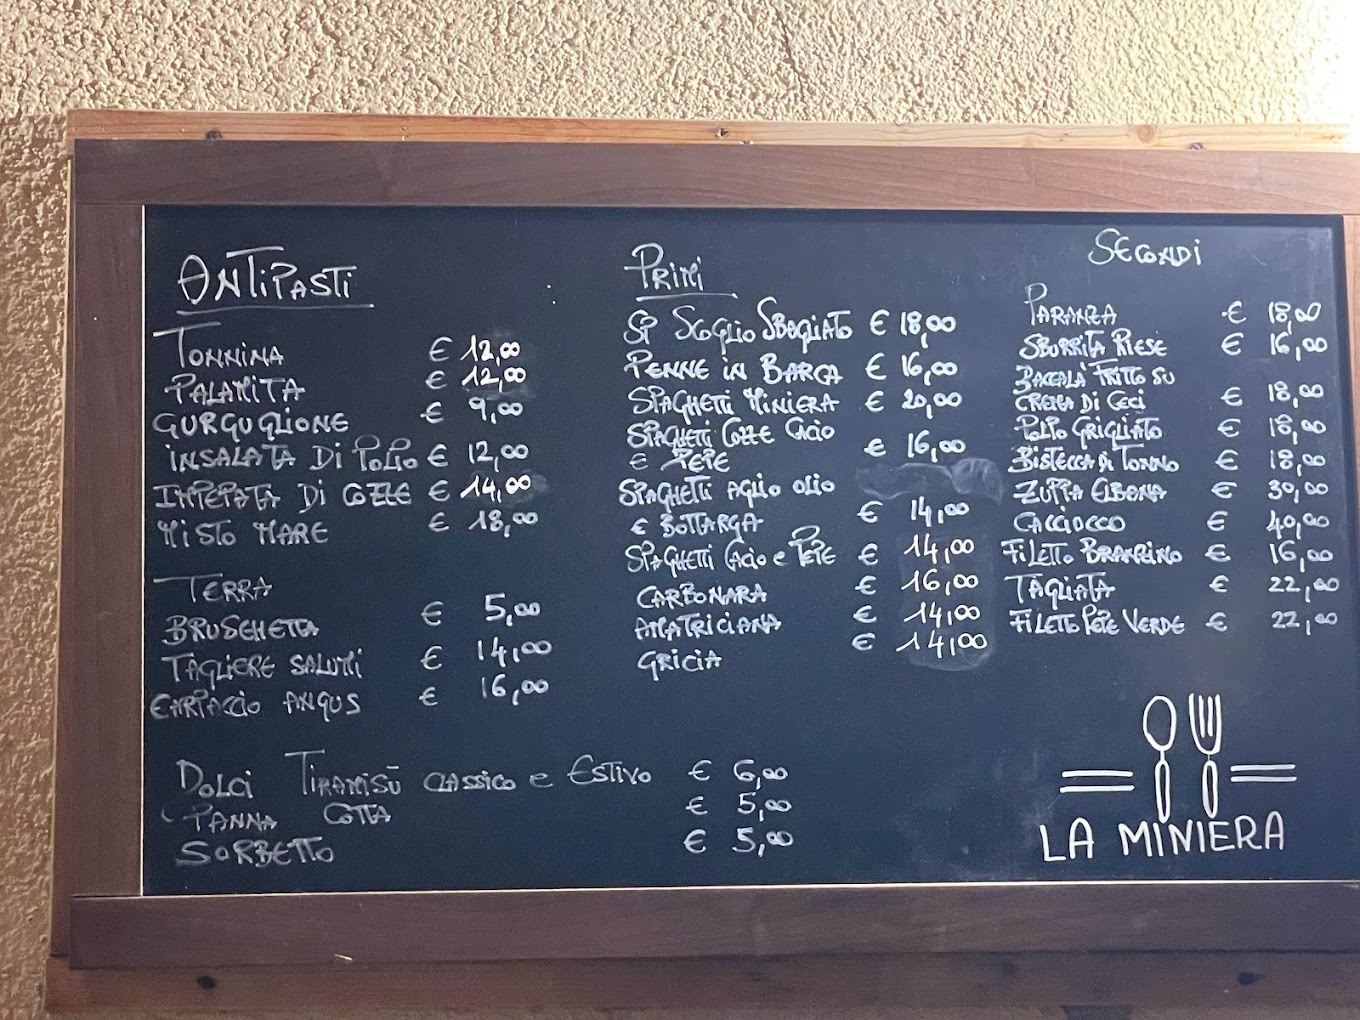 ANTIPASTI
TONNINA € 12,00
PALAMITA € 12,00
GURGUGLIONE € 9,00
INSALATA DI POLPO € 12,00
IMPEPATA DI COZZE € 14,00
MISTO MARE € 18,00
TERRA
BRUSCHETTA € 5,00
TAGLIERE SALUMI € 14,00
CARPACCIO ANGUS € 16,00
PRIMI
SP SCOGLIO SBAGLIATO € 18,00
PENNE IN BARCA € 16,00
SPAGHETTI MINIERA € 20,00
SPAGHETTI COZZE CACIO
E PEPE € 16,00
SPAGHETTI AGLIO OLIO
E BOTTARGA € 14,00
SPAGHETTI CACIO E PEPE € 14,00
CARBONARA € 16,00
AMATRICIANA € 14,00
GRICIA € 14,00
SECONDI
PARANZA € 18,00
SBURRITA RIESE € 16,00
BACCALÀ FRITTO SU
CREMA DI CECI € 18,00
POLPO GRIGLIATO € 18,00
BISTECCA DI TONNO € 18,00
ZUPPA ELBANA € 30,00
CACCIUCCO € 40,00
FILETTO BRANZINO € 16,00
TAGLIATA € 22,00
FILETTO PEPE VERDE € 22,00
DOLCI TIRAMISÙ CLASSICO E ESTIVO € 6,00
PANNA COTTA € 5,00
SORBETTO € 5,00
LA MINIERA